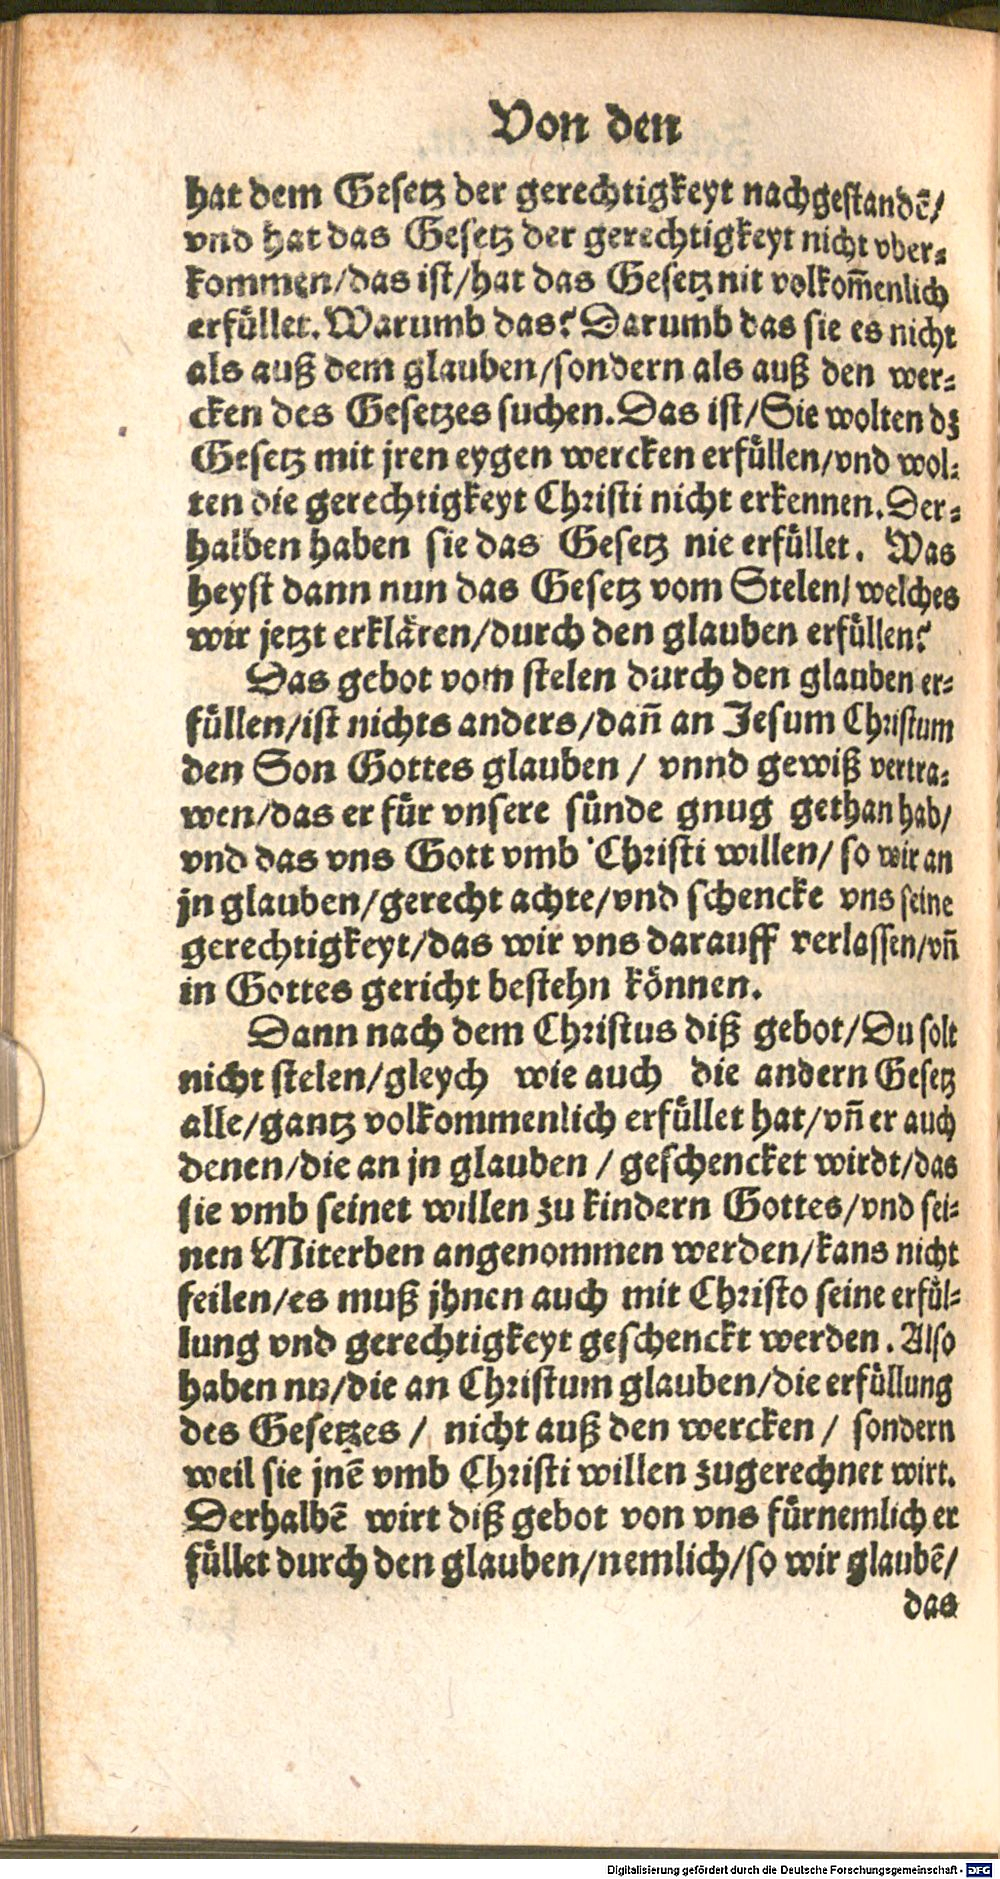 Von den
hat dem Gesetz der gerechtigkeyt nachgestandẽ/
vnd hat das Gesetz der gerechtigkeyt nicht vber-
kommen/das ist/hat das Gesetz nit volkom̃enlich
erfüllet. Warumb das? Darumb das sie es nicht
als auß dem glauben/sondern als auß den wer-
cken des Gesetzes suchen. Das ist/Sie wolten dz
Gesetz mit jren eygen wercken erfüllen/vnd wol-
ten die gerechtigkeyt Christi nicht erkennen. Der-
halben haben sie das Gesetz nie erfüllet. Was
heyst dann nun das Gesetz vom Stelen/welches
wir jetzt erklären/durch den glauben erfüllen?
Das gebot vom stelen durch den glauben er-
füllen/ist nichts anders/dañ an Jesum Christum
den Son Gottes glauben/ vnnd gewiß vertra-
wen/das er für vnsere sünde gnug gethan hab/
vnd das vns Gott vmb Christi willen/ so wir an
jn glauben/gerecht achte/vnd schencke vns seine
gerechtigkeyt/das wir vns darauff verlassen/vñ
in Gottes gericht bestehn können.
Dann nach dem Christus diß gebot/Du solt
nicht stelen/gleych wie auch die andern Gesetz
alle/gantz volkommenlich erfüllet hat/vñ er auch
denen/die an jn glauben/geschencket wirdt/das
sie vmb seinet willen zu kindern Gottes/vnd sei-
nen Miterben angenommen werden/kans nicht
feilen/es muß jhnen auch mit Christo seine erfül-
lung vnd gerechtigkeyt geschenckt werden. Also
haben nu/die an Christum glauben/die erfüllung
des Gesetzes/ nicht auß den wercken/ sondern
weil sie jnẽ vmb Christi willen zugerechnet wirt.
Derhalbẽ wirt diß gebot von vns fürnemlich er
füllet durch den glauben/nemlich/so wir glaubẽ/
das
Digitalisierung gefördert durch die Deutsche Forschungsgemeinschaft - DFG